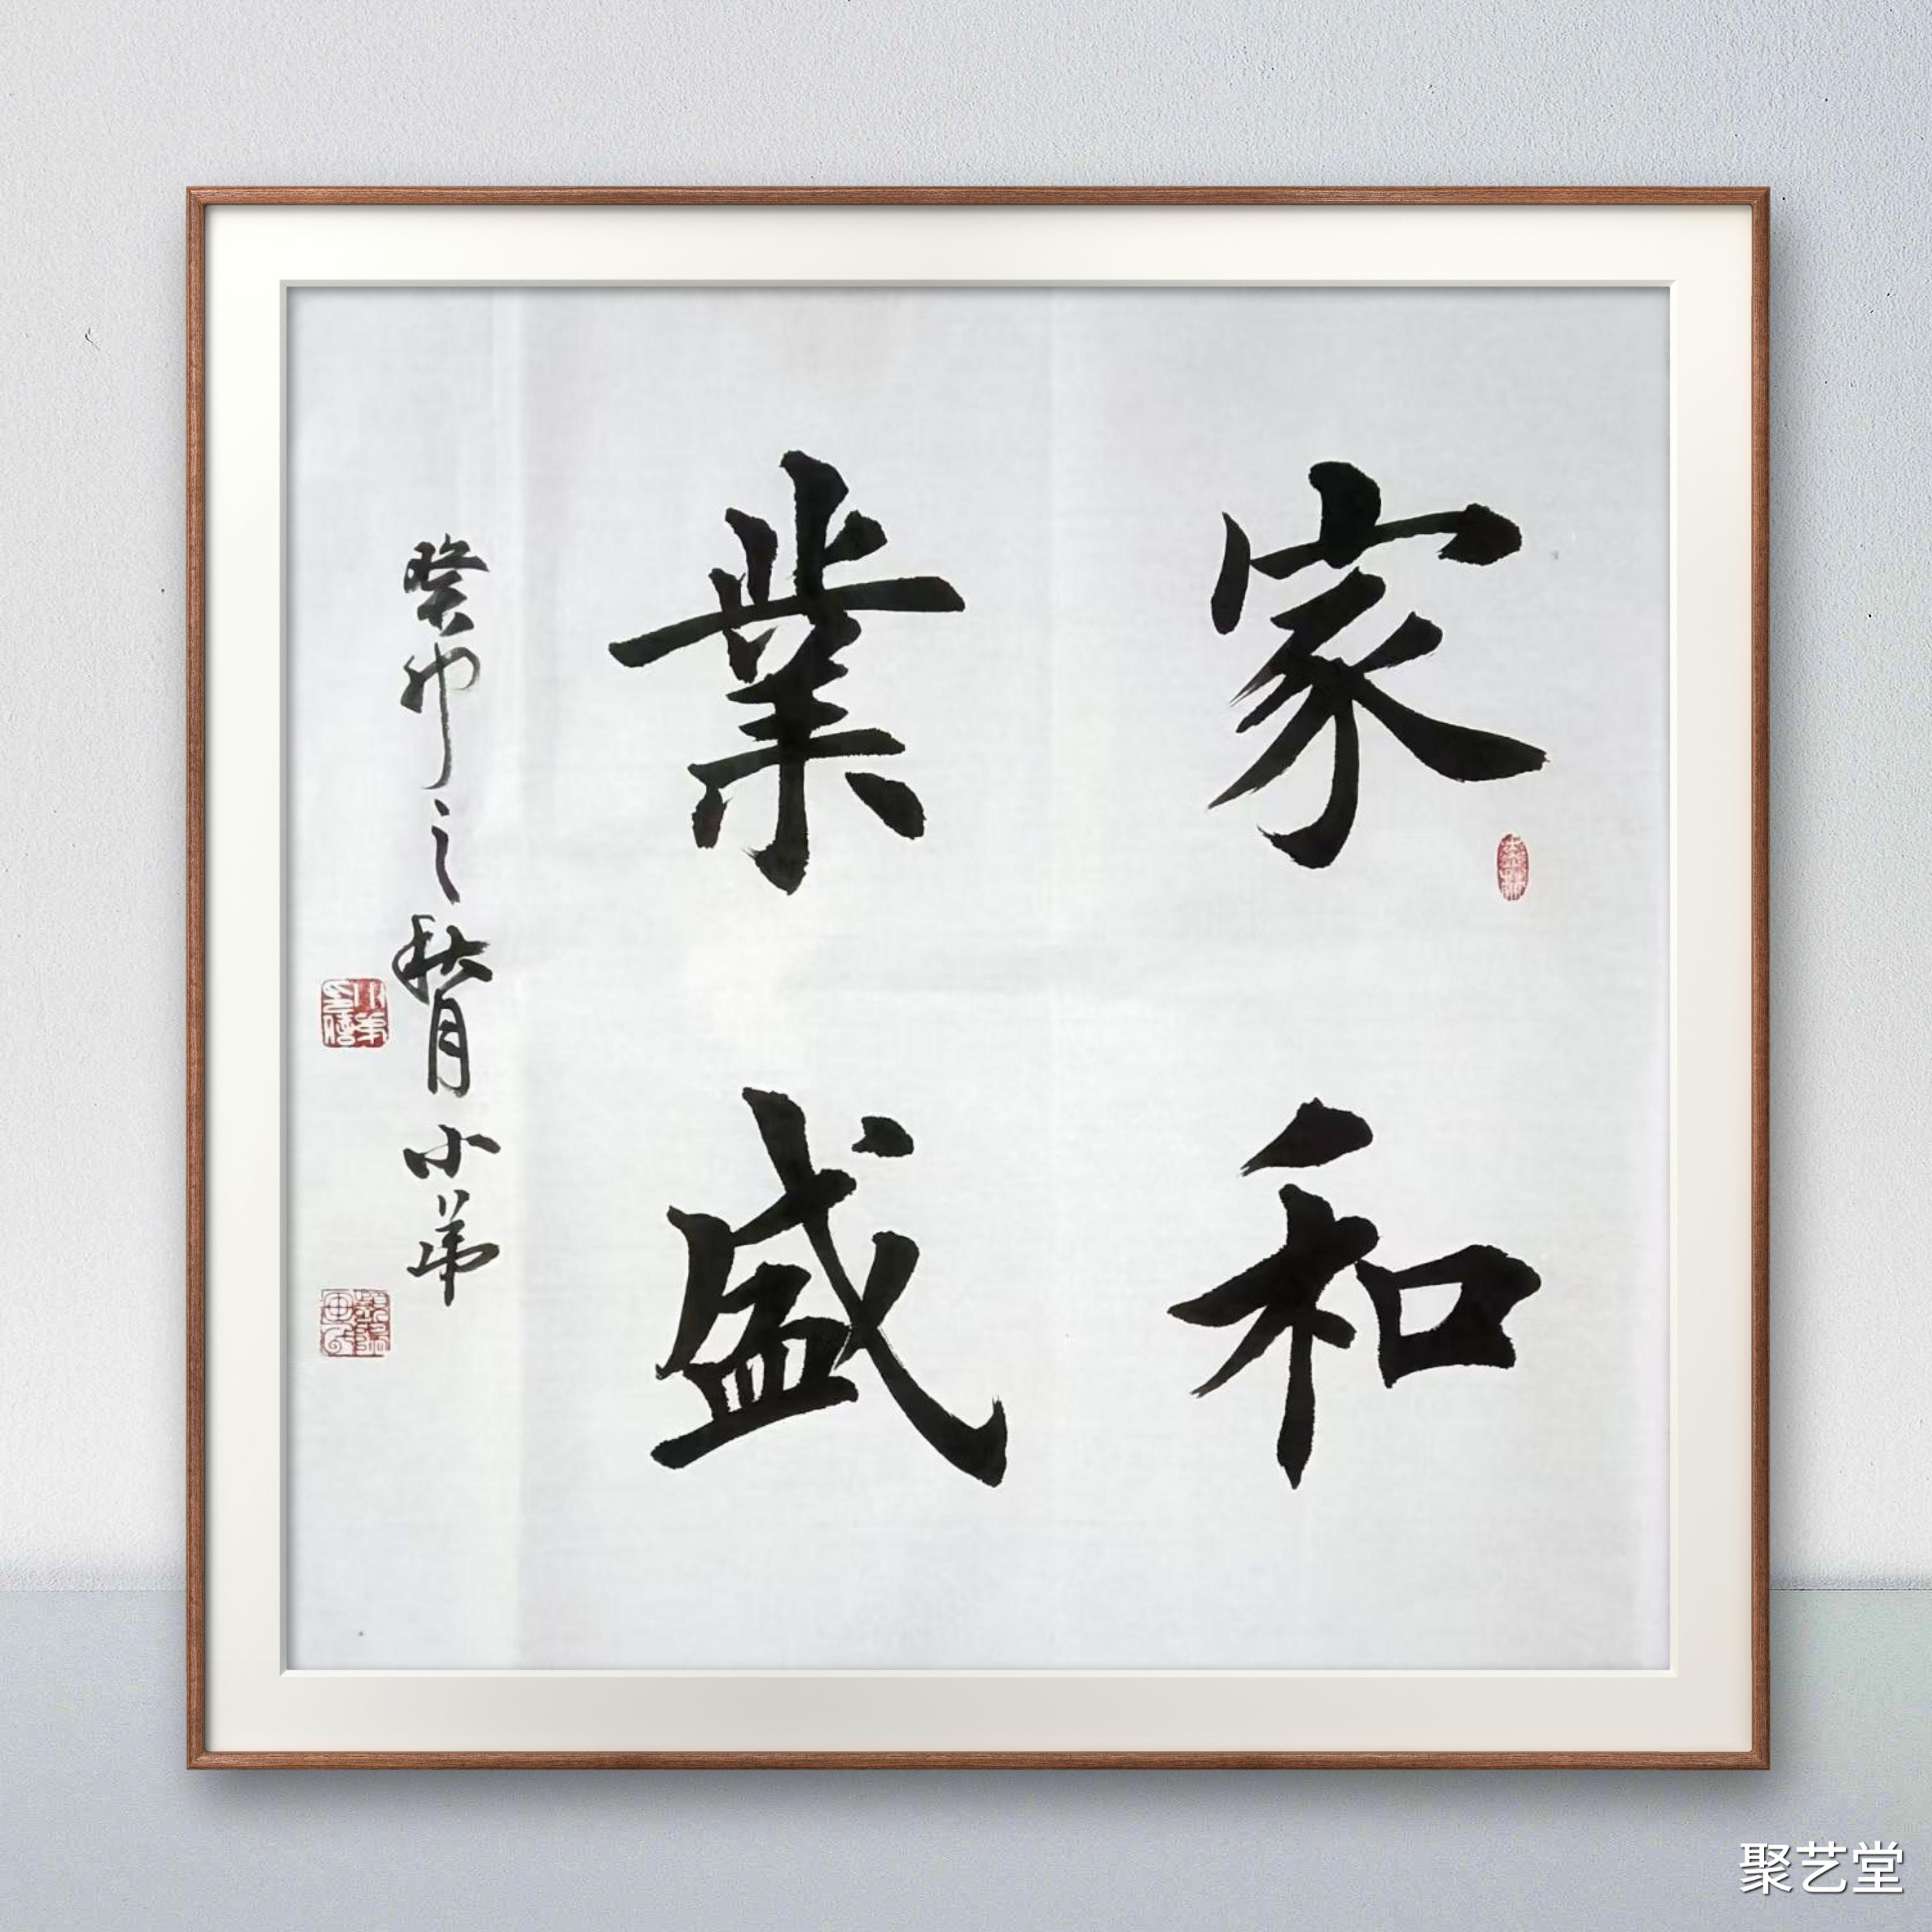 家和
業盛
癸卯之秋月小弟
聚艺堂